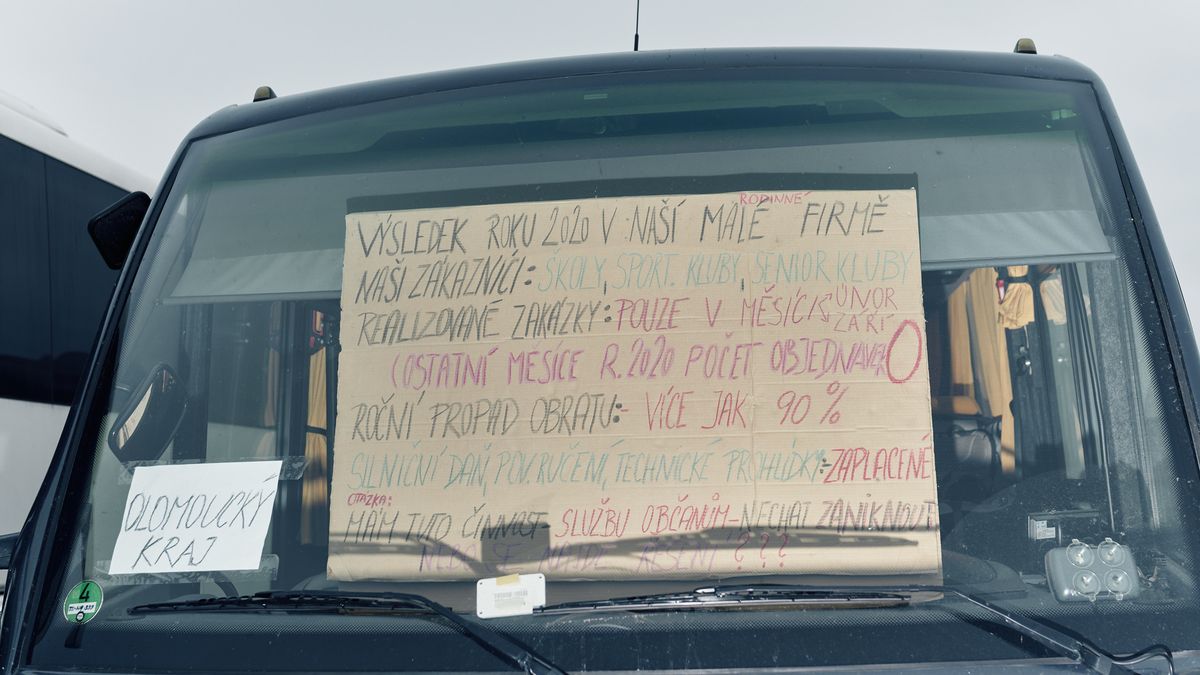 RODINNÉ
VÝSLEDEK ROKU 2020 V NAŠÍ MALÉ FIRMĚ
NAŠI ZÁKAZNÍCI: ŠKOLY, SPORT. KLUBY, SENIOR KLUBY
REALIZOVANÉ ZAKÁZKY: POUZE V MĚSÍCÍS ÚNOR
ZÁŘÍ
(OSTATNÍ MĚSÍCE R. 2020 POČET OBJEDNÁVEK 0
ROČNÍ PROPAD OBRATU:- VÍCE JAK 90 %
SILNIČNÍ DAŇ, POV. RUČENÍ, TECHNICKÉ PROHLÍDKY: ZAPLACENÉ
OTÁZKA:
MÁM TUTO ČINNOST- SLUŽBU OBČANŮM-NECHAT ZANIKNOUT
NEBO SE NAJDE ŘEŠENÍ ???
OLOMOUCKÝ
KRAJ
4